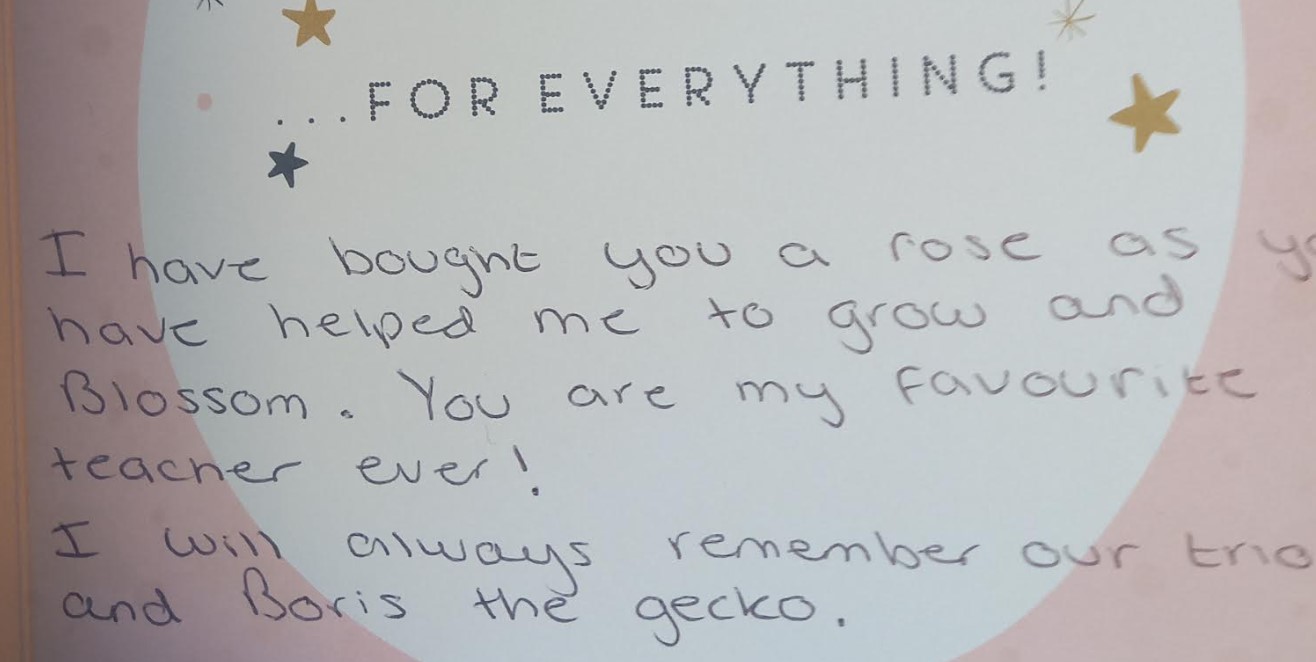 ...FOR EVERYTHING!
I have bought you a rose as
have helped me to grow and
Blossom. You are my favourite
teacher ever!
I will always remember our
and Boris the gecko.